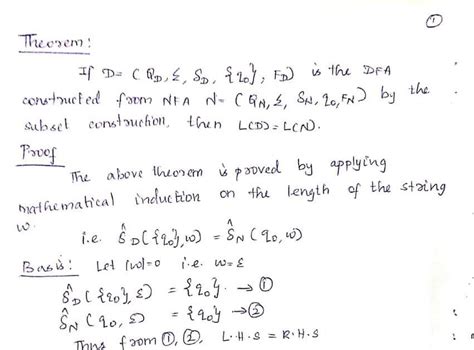 ①
Theorem:
If D= (Q_D, Σ, δ_D, {q₀}, F_D) is the DFA
constructed from NFA N= (Q_N, Σ, δ_N, q₀, F_N) by the
subset construction, then L(D)=L(N).
Proof
The above theorem is proved by applying
mathematical induction on the length of the string
w.
i.e. δ̂_D({q₀}, w) = δ̂_N(q₀, w)
Basis: Let |w|=0 i.e. w=ε
δ̂_D({q₀}, ε) = {q₀} → ①
δ̂_N(q₀, ε) = {q₀} → ②
Thus from ①, ②, L.H.S = R.H.S